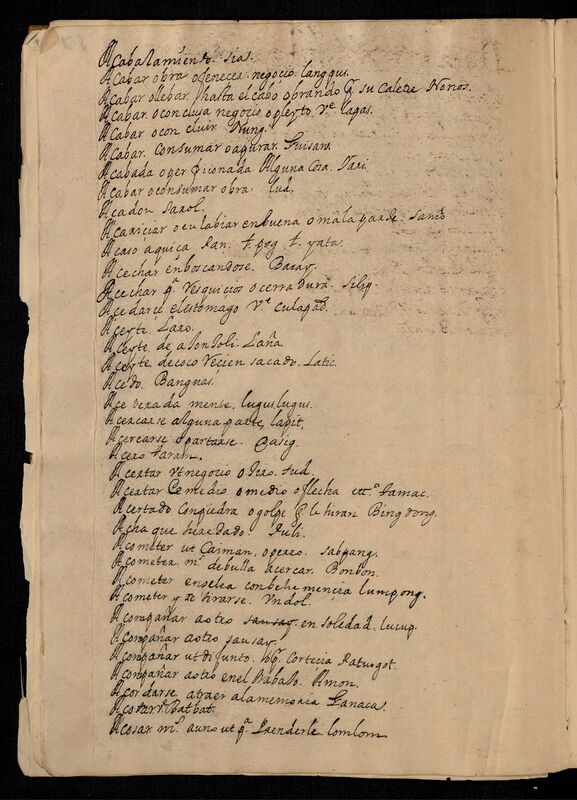 Acabalamiento. sias.
Acabar obra o feneces. negocio. langqus.
Acabar o llebar. hasta el cabo obrando q̃ su caletre Nonos.
Acabar. o conclusa negocio o pleyto Vᵉ lagas.
Acabar o con cluir Nung.
Acabar. Consumar o apurar. Guisan.
Acabada o perficionada Alguna Cosa. Yari
Acabar o consumar obra lud.
Acadon Saxol.
Acariciar o cu labiar en buena o mala parte. Samo
Acaso aquiça Pan. t. pog t. yata.
Acechar enboscandose. Bacay.
Acechar pᵃ Resquicios o cerradura. Silip.
Acedarce el estomago Vᵗ culapad.
Aceyte. Laro.
Aceyte. de a Jon Joli. Laña
Aceyte. de coco Recien sacado. Latic.
Acedo. Bangnas.
Ace lerada mente. lugus lugus.
Acercarse alguna parte, lapit.
Acercarse o partarse. Casig.
Acero taram.
Acertar Vᵗ negocio o Jiro. tud.
Acertar Remedio o medio o flecha ett.ᵃ tamac.
Acertado Conpiedra o golpe q̃ le hiran Bingdong.
Acha que heredado. Puli.
Acometer ut Caiman, o perro. Sabpang.
Acometer. mˢ de bulla acercar. Bonbon.
Acometer en pelea con behe mencia lumpong.
Acometer y Re tirarse. Undol.
Aconpañar a otro sausay en soledad. lucup.
Aconpañar a otro sausay.
Aconpañar ut difunto. pp. Cortecia Patungot.
Aconpañar a otro en el trabaxo. Amon.
Acordarse. atraer a la memoria Ganaca.
Acotar Vᵗ Batbat.
Acosar mˢ a uno ut pᵃ Prenderle. lomlom